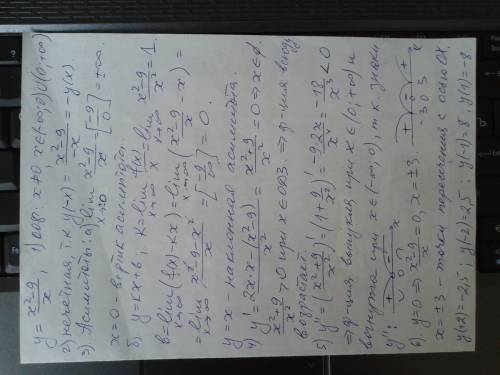 y = x²-9/x ; 1) ООФ: x≠0, x∈(-∞;0)∪(0;+∞)
2) нечётная, т.к. y(-x) = x²-9/-x = -y(x).
3) Асимптоты: а) lim x→0 x²-9/x = [-9/0] = +∞.
x=0 - вертик асимптота.
б) y=kx+b, k=lim x→∞ f(x)/x = lim x→∞ x²-9/x² = 1.
b = lim x→∞ (f(x)-kx) = lim x→∞ (x²-9/x - x) =
= lim x→∞ x²-9-x²/x = [-9/∞] = 0.
y=x - наклонная асимптота.
4) y' = 2x·x-(x²-9)/x² = x²+9/x² = 0 ⇒ x∈∅.
x²+9/x² > 0 при x∈ОДЗ. ⇒ ф-ция всюду
возрастает.
5) y'' = (x²+9/x²)' = (1+9/x²)' = -9·2x/x⁴ = -18/x³ < 0
⇒ ф-ция выпукла при x∈(0;+∞) и
вогнута при x∈(-∞;0), т.к. знаки
y'': + 0 - x
6) y=0 ⇒ x²-9/x = 0, x=±3. - -3 + 0 - 3 + x
x=±3 - точки пересечения с осью OX.
y(+2)=-2,5; y(-2)=2,5; y(-1)=8, y(1)=-8.